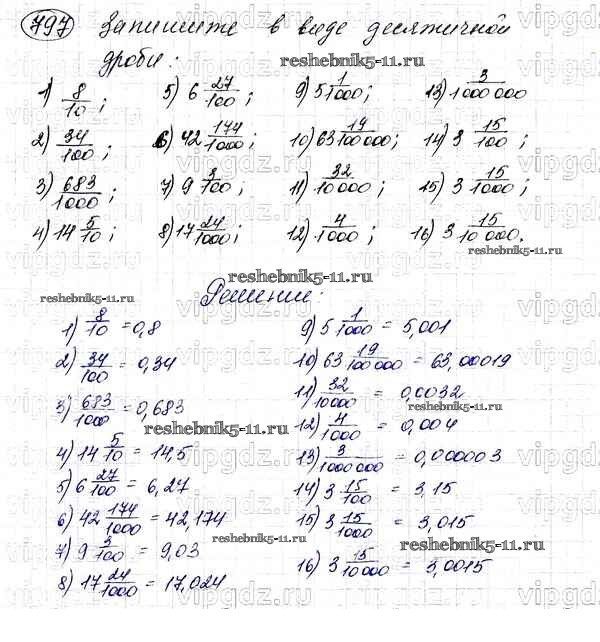 797 Запишите в виде десятичной
дроби:
reshebnik5-11.ru
1) 8/10; 5) 6 27/100; 9) 5 1/1000; 13) 3/1000000
2) 34/100; 6) 42 174/1000; 10) 63 19/100000; 14) 3 15/100;
3) 683/1000; 7) 9 3/100; 11) 32/10000; 15) 3 15/1000;
4) 14 5/10; 8) 17 24/1000; 12) 4/1000; 16) 3 15/10000.
reshebnik5-11.ru
reshebnik5-11.ru
reshebnik5-11.ru
Решение:
1) 8/10 = 0,8
2) 34/100 = 0,34
3) 683/1000 = 0,683
reshebnik5-11.ru
4) 14 5/10 = 14,5
5) 6 27/100 = 6,27
6) 42 174/1000 = 42,174
7) 9 3/100 = 9,03
8) 17 24/1000 = 17,024
9) 5 1/1000 = 5,001
10) 63 19/100000 = 63,00019
11) 32/10000 = 0,0032
reshebnik5-11.ru
12) 4/1000 = 0,004
13) 3/1000000 = 0,000003
14) 3 15/100 = 3,15
15) 3 15/1000 = 3,015
reshebnik5-11.ru
reshebnik5-11.ru
16) 3 15/10000 = 3,0015
vipgdz.ru